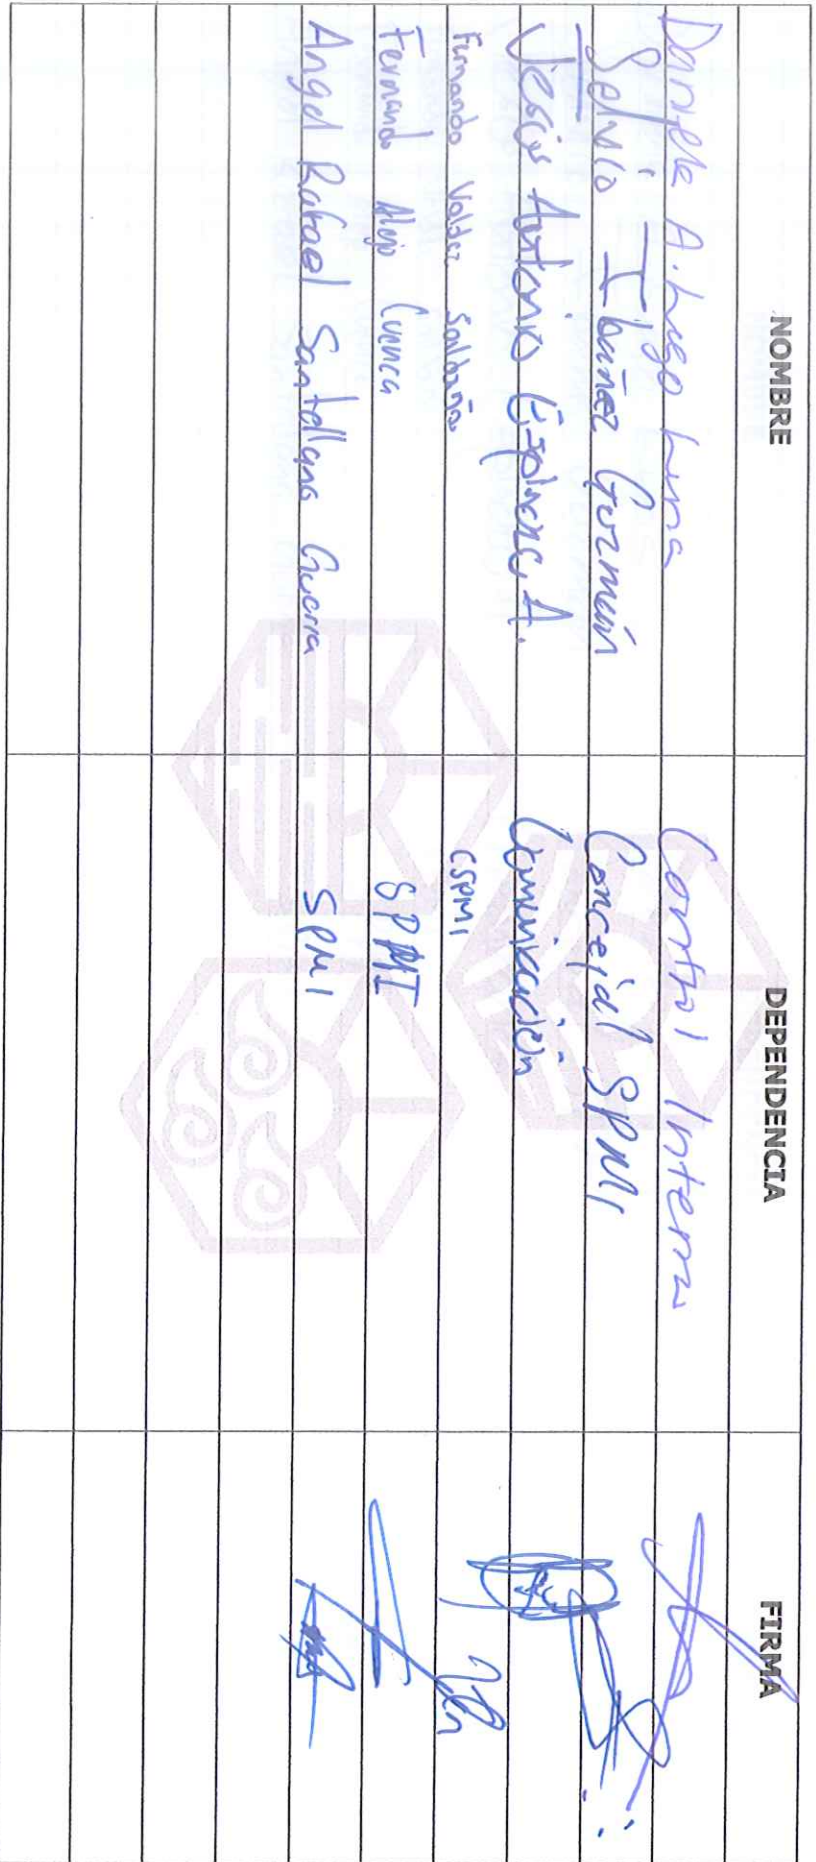 NOMBRE DEPENDENCIA FIRMA
Daniela A. Lugo Luna Control Interno
Selvio Ibañez Guzmán Concejal SPMI
Jesús Antonio Espinoza A. Comunicación
Fernando Valdez Saldaña CSPMI
Fernando Alejo Cuenca SPMI
Angel Rafael Santillana Guerra SPMI